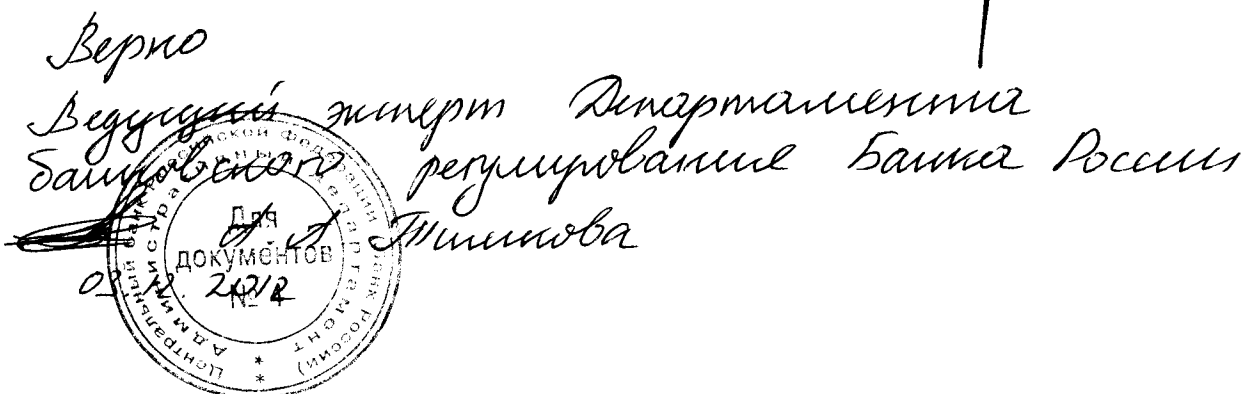 Верно
Ведущий эксперт Департамента
банковского регулирования Банка России
А. А.
03 2012
Центральный банк Российской Федерации (Банк России)
Административный департамент
Для
документов
№ 4